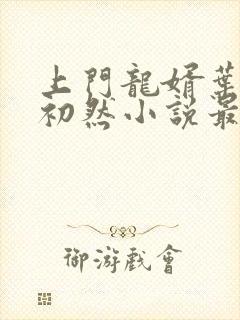 上門龍婿葉
初然小説最
御游戲會